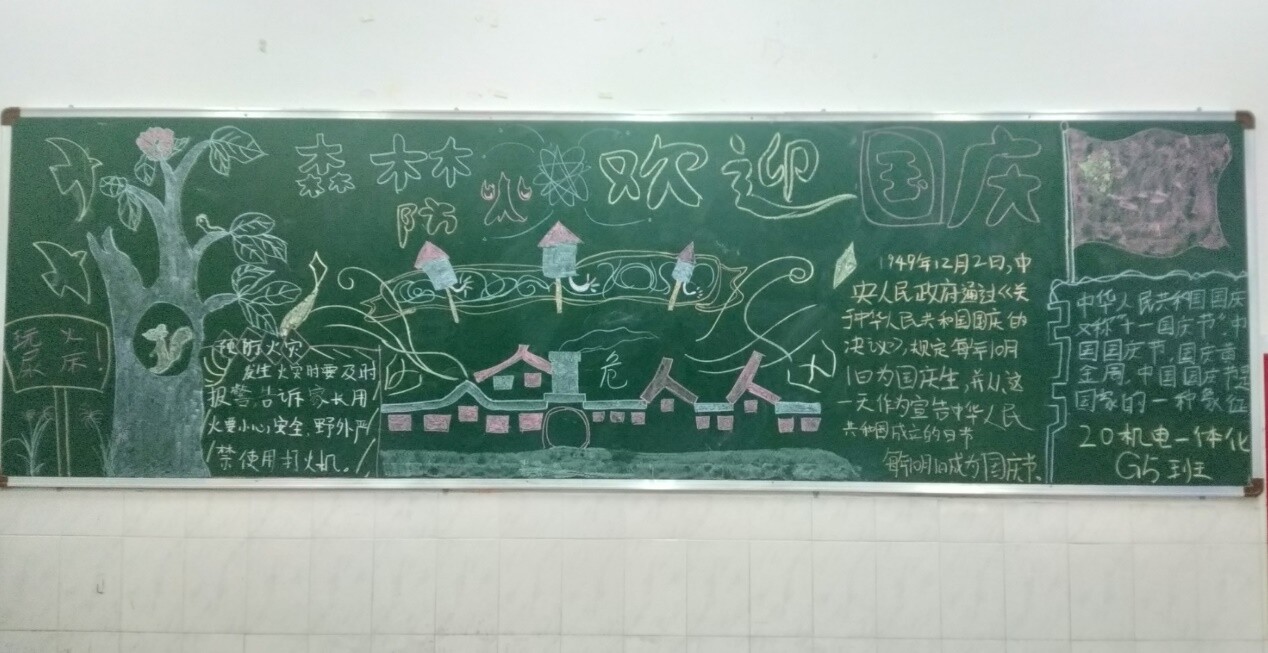 森林
防火
欢迎
国庆
玩火
尿床!
预防火灾
发生火灾时要及时
报警,告诉家长用
火要小心,安全,野外严
禁使用打火机。
危
1949年12月2日,中
央人民政府通过《关
于中华人民共和国国庆的
决议》,规定每年10月
1日为国庆生,并从这
一天作为宣告中华人民
共和国成立的日书
每年10月1日成为国庆书。
中华人民共和国国庆
又称"十一国庆节"中
国国庆节,国庆黄
金周,中国国庆节是
国家的一种象征
20机电一体化
G15班